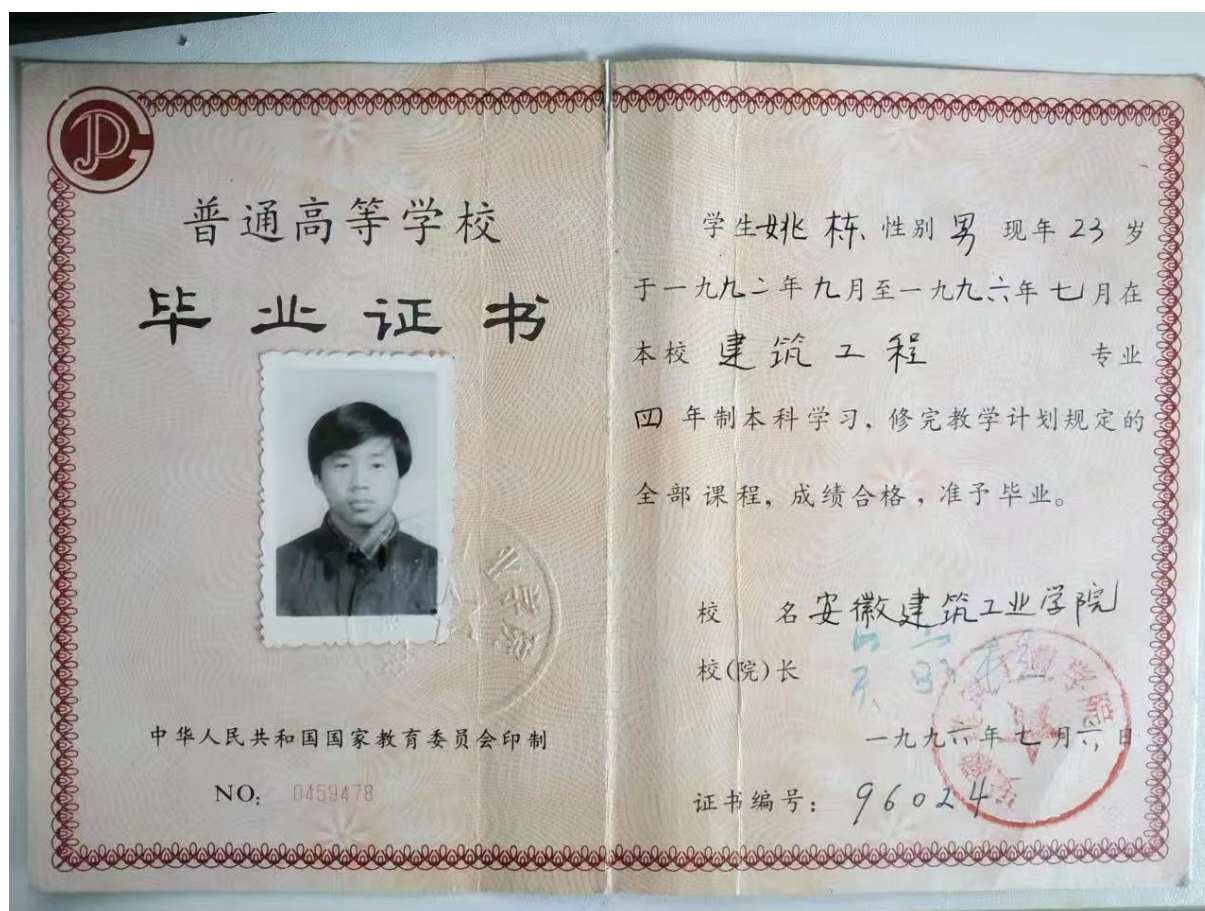 普通高等学校
毕业证书
中华人民共和国国家教育委员会印制
NO: 0459478
学生姚栋 性别男 现年23岁
于一九九二年九月至一九九六年七月在
本校建筑工程 专业
四年制本科学习，修完教学计划规定的
全部课程，成绩合格，准予毕业。
校 名 安徽建筑工业学院
校(院)长
一九九六年七月六日
证书编号：96024